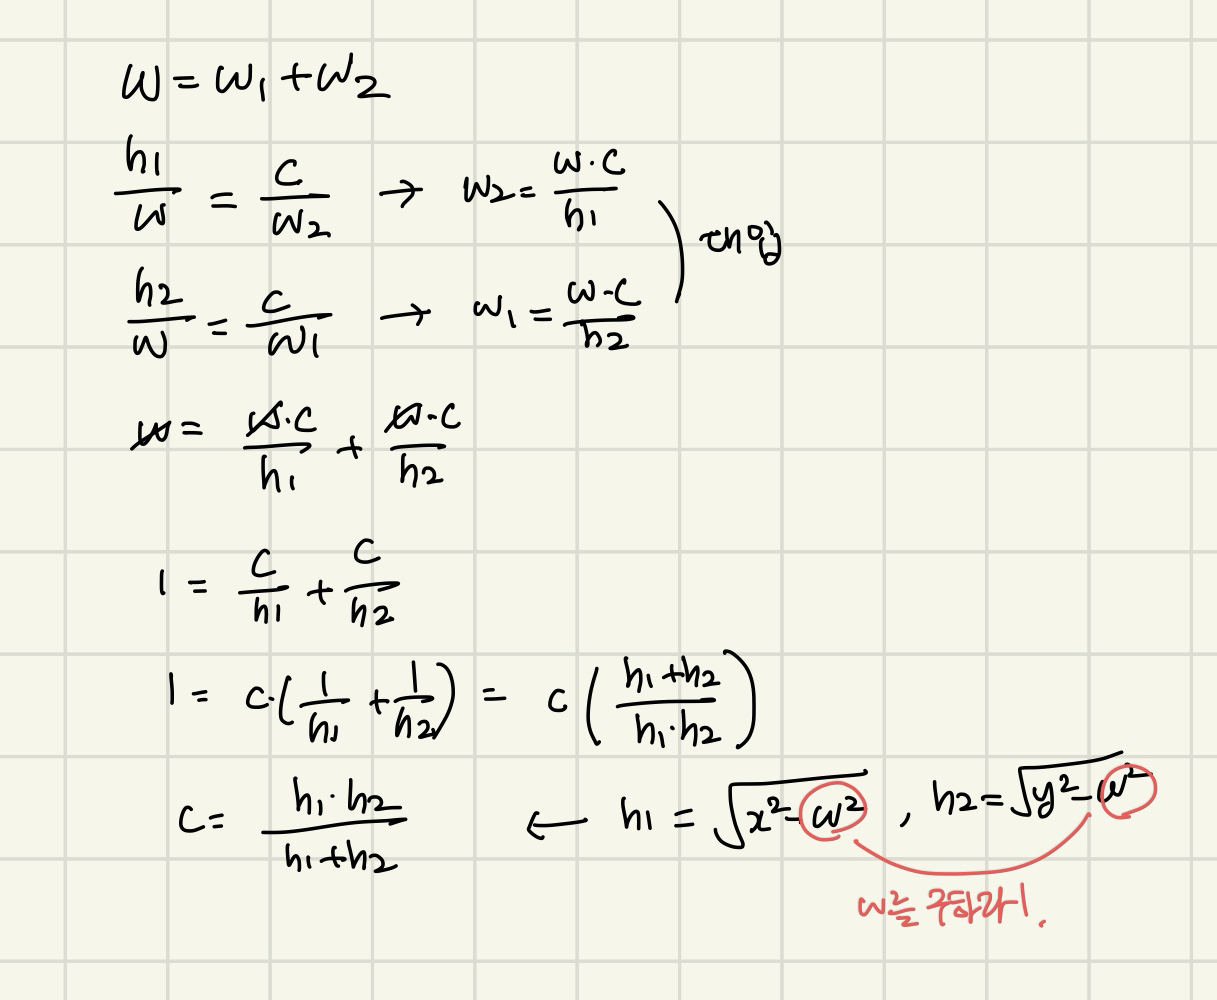 w = w1 + w2
h1/w = c/w2 → w2 = w·c/h1
대입
h2/w = c/w1 → w1 = w·c/h2
w = w·c/h1 + w·c/h2
1 = c/h1 + c/h2
1 = c·(1/h1 + 1/h2) = c(h1+h2/h1·h2)
c = h1·h2/h1+h2 ← h1 = √x²-w² , h2 = √y²-w²
w를 구하라!.